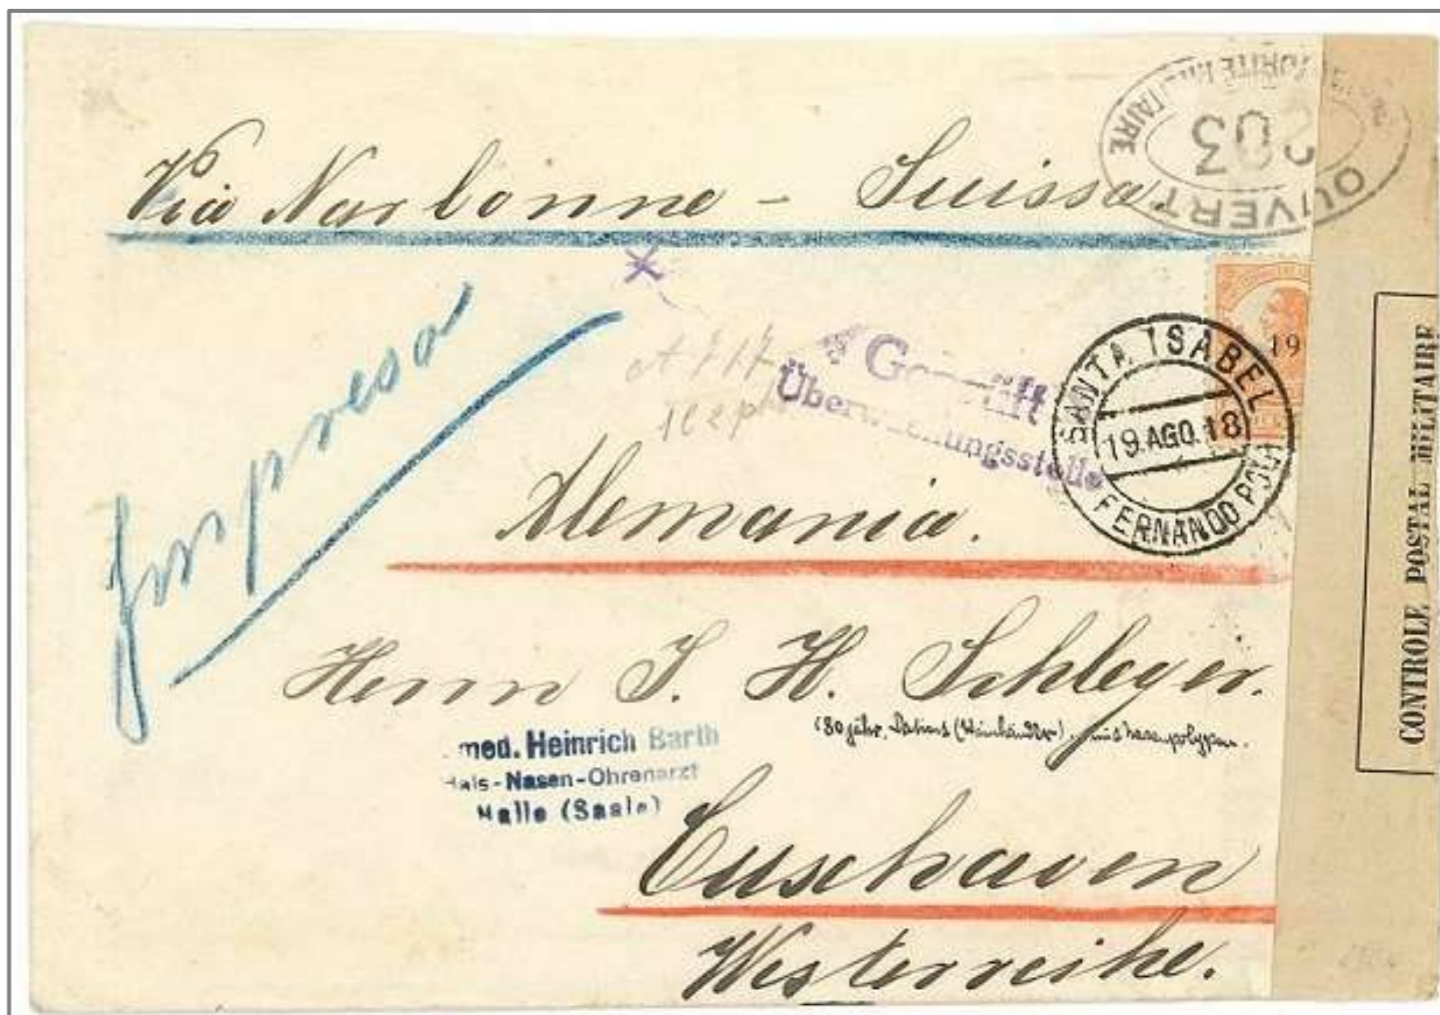 OUVERT
203
Via Narbonne - Suissa.
Impresa
Geprüft
Überwachungsstelle
19
SANTA ISABEL
19.AGO.18
FERNANDO POO
Alemania.
Herrn J. H. Schleyer.
med. Heinrich Barth
Hals-Nasen-Ohrenarzt
Halle (Saale)
Cuxhaven
Westerreihe.
CONTROLE POSTAL MILITAIRE